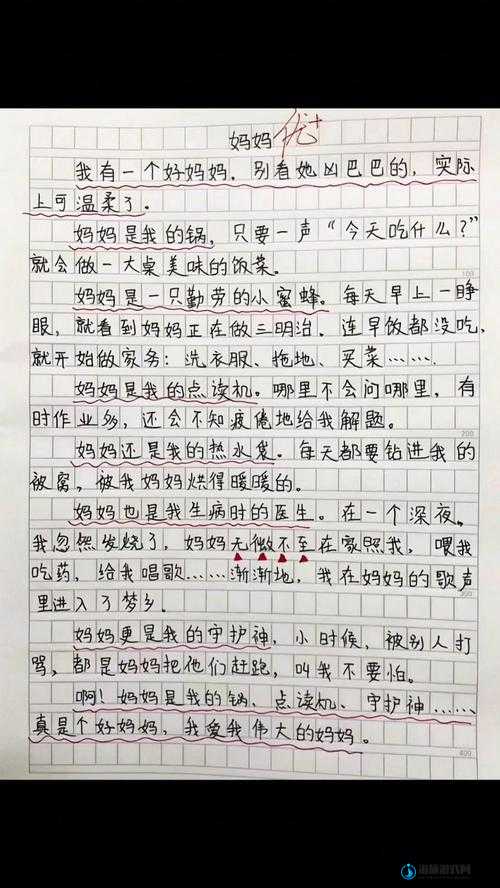 妈妈 优+
我有一个好妈妈，别看她凶巴巴的，实际
上可温柔了。
妈妈是我的锅，只要一声“今天吃什么？”
就会做一大桌美味的饭菜。
100
妈妈是一只勤劳的小蜜蜂。每天早上一睁
眼，就看到妈妈正在做三明治。连早饭都没吃，
就开始做家务：洗衣服、拖地、买菜……
妈妈是我的点读机。哪里不会问哪里，有
时作业多，还会不知疲倦地给我解题。
200
妈妈还是我的热水袋。每天都要钻进我的
被窝，被我妈妈烘得暖暖的。
妈妈也是我生病时的医生。在一个深夜。
我忽然发烧了，妈妈无微不至在家照我，喂我
吃药，给我唱歌……渐渐地，我在妈妈的歌声
300
里进入了梦乡。
妈妈更是我的守护神，小时候，被别人打
骂，都是妈妈把他们赶跑，叫我不要怕。
啊！妈妈是我的锅、点读机、守护神……
真是个好妈妈，我爱我伟大的妈妈。
400